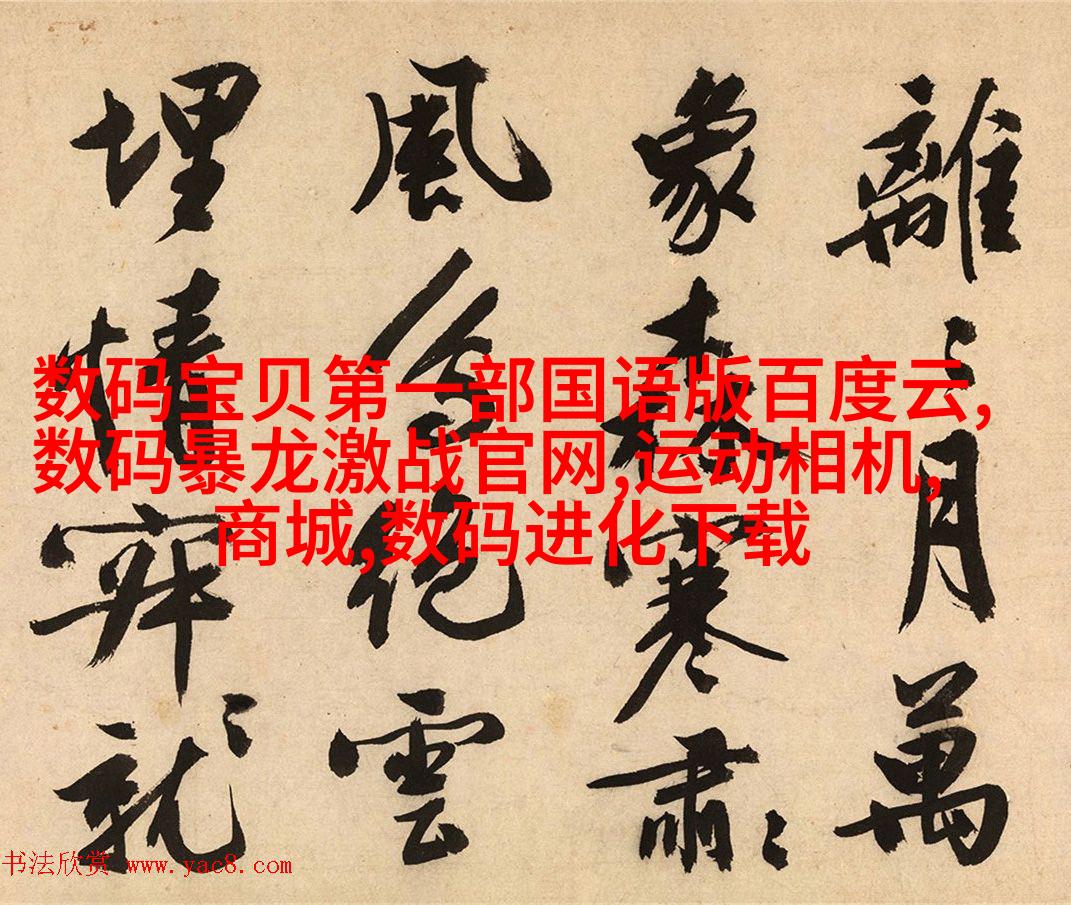 離〻月萬
象森寒肅〻
風絶雲
埋情
数码宝贝第一部国语版百度云,
数码暴龙激战官网,运动相机,
商城,数码进化下载
书法欣赏 www.yac8.com